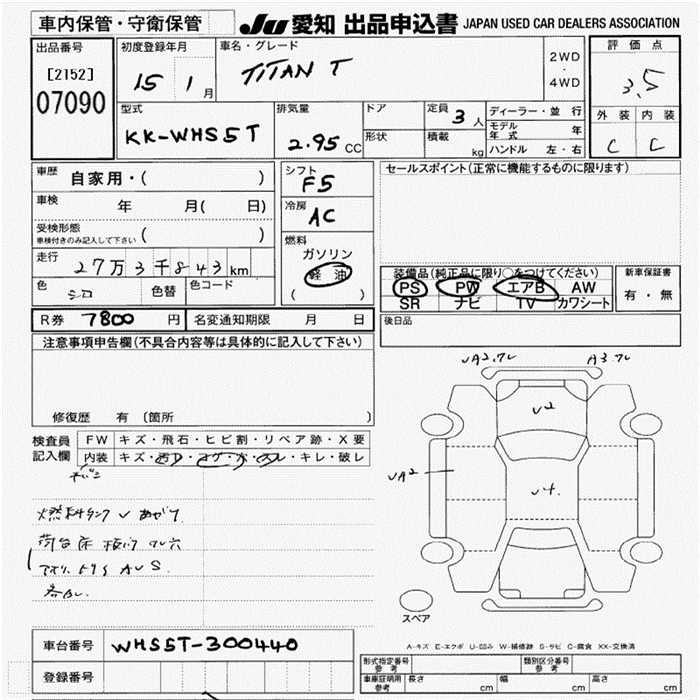 車内保管・守衛保管
JU 愛知 出品申込書 JAPAN USED CAR DEALERS ASSOCIATION
出品番号
[2152]
07090
初度登録年月
15 1月
車名・グレード
TITAN T
2WD
・
4WD
評価点
3.5
外装 内装
C C
型式
KK-WHS5T
排気量
2.95 CC
ドア
形状
定員 3人
積載 kg
ディーラー・並行
モデル年式 年
ハンドル 左・右
車歴 自家用・( )
車検 年 月( 日)
受検形態
車検付きのみ記入して下さい ( )
走行 27万3千843km
色 シロ 色替 色コード
シフト
F5
冷房
AC
燃料
ガソリン
軽油
( )
セールスポイント(正常に機能するものに限ります)
装備品(純正品に限り○をつけてください)
PS PW エアB AW
SR ナビ TV カワシート
新車保証書
有・無
R券 7800円 名変通知期限 月 日
後日品
注意事項申告欄(不具合内容等は具体的に記入して下さい)
修復歴 有 〔箇所 〕
検査員記入欄
FW キズ・飛石・ヒビ割・リペア跡・X要
内装 キズ・汚れ・コゲ・穴・スレ・キレ・破レ
燃料タンク
荷台床
アオリ
UA2.フレ A3.フレ
U2
UA2
U4.
スペア
A-キズ E-エクボ U-凹み W-補修跡 S-サビ C-腐食 XX-交換済
車台番号 WHS5T-300440
登録番号
形式指定番号 参考 類別区分番号 参考
車庫証明用 参考 長さ cm 幅 cm 高さ cm